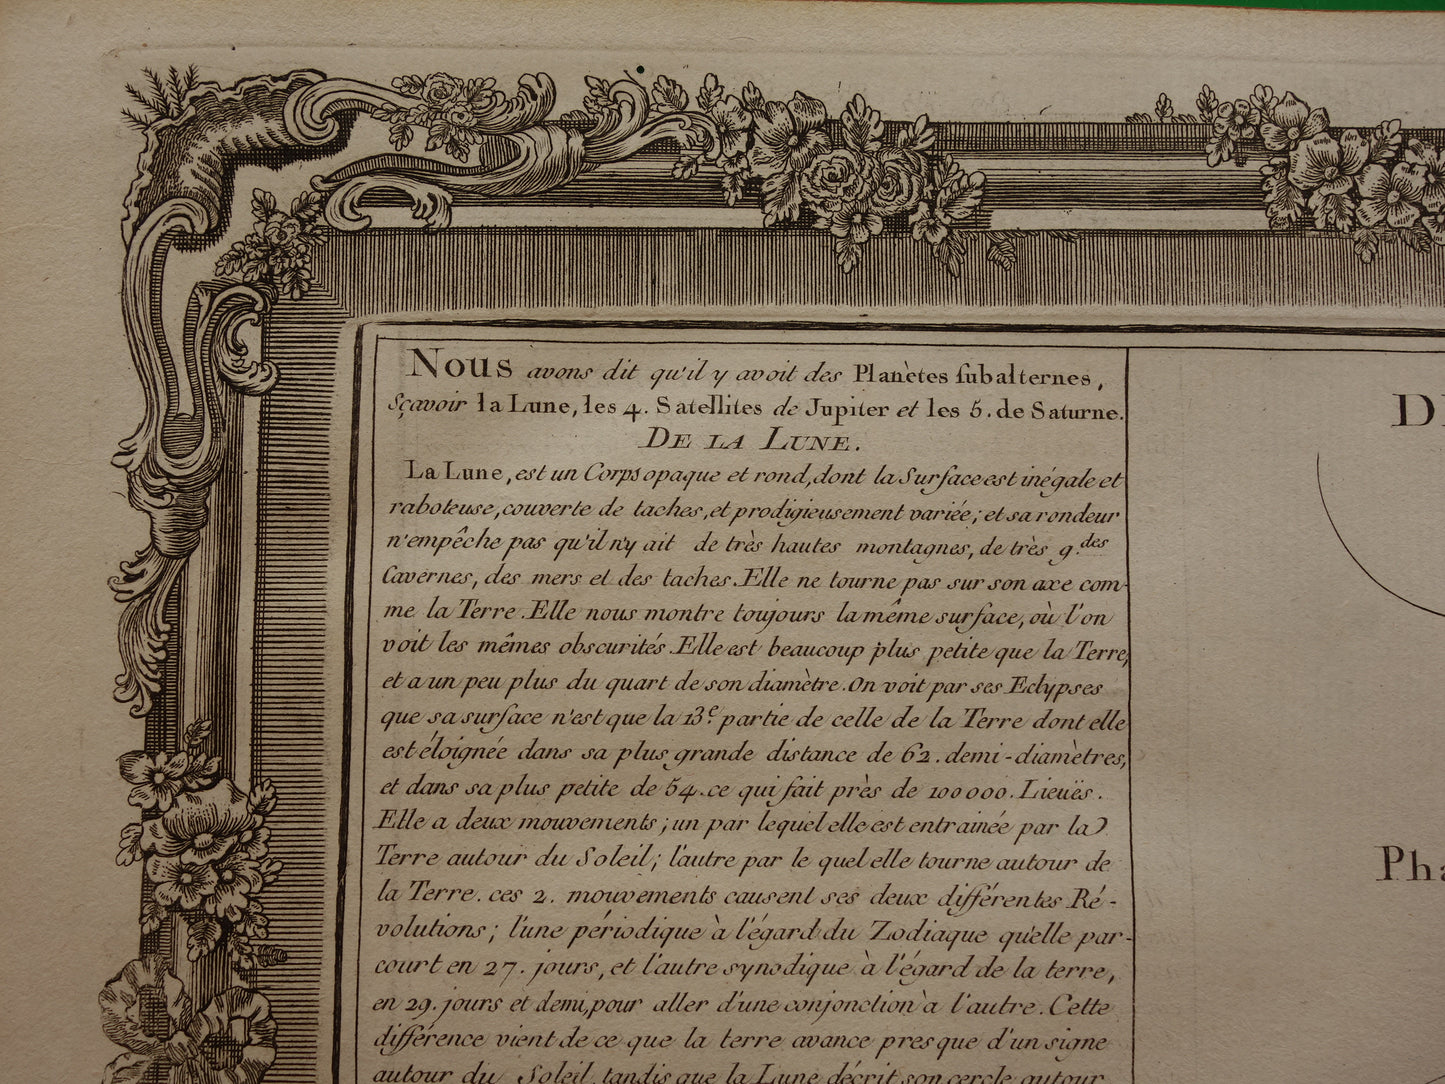 Nous avons dit qu'il y avoit des Planètes subalternes,
Sçavoir la Lune, les 4. Satellites de Jupiter et les 5. de Saturne.
DE LA LUNE.
La Lune, est un Corps opaque et rond, dont la Surface est inégale et
raboteuse, couverte de taches, et prodigieusement variée; et sa rondeur
n'empêche pas qu'il n'y ait de très hautes montagnes, de très g.des
Cavernes, des mers et des taches. Elle ne tourne pas sur son axe com-
me la Terre. Elle nous montre toujours la même surface, où l'on
voit les mêmes obscurités. Elle est beaucoup plus petite que la Terre,
et a un peu plus du quart de son diamètre. On voit par ses Eclypses
que sa surface n'est que la 13.e partie de celle de la Terre dont elle
est éloignée dans sa plus grande distance de 62. demi-diamètres,
et dans sa plus petite de 54. ce qui fait près de 100000. Lieuës.
Elle a deux mouvements; un par lequel elle est entrainée par la
Terre autour du Soleil; l'autre par le quel elle tourne autour de
la Terre. ces 2. mouvements causent ses deux différentes Ré-
volutions; l'une périodique à l'égard du Zodiaque qu'elle par-
court en 27. jours, et l'autre synodique à l'égard de la terre,
en 29. jours et demi, pour aller d'une conjonction à l'autre. Cette
différence vient de ce que la terre avance presque d'un signe
autour du Soleil, tandis que la Lune décrit son cercle autour
D
Pha